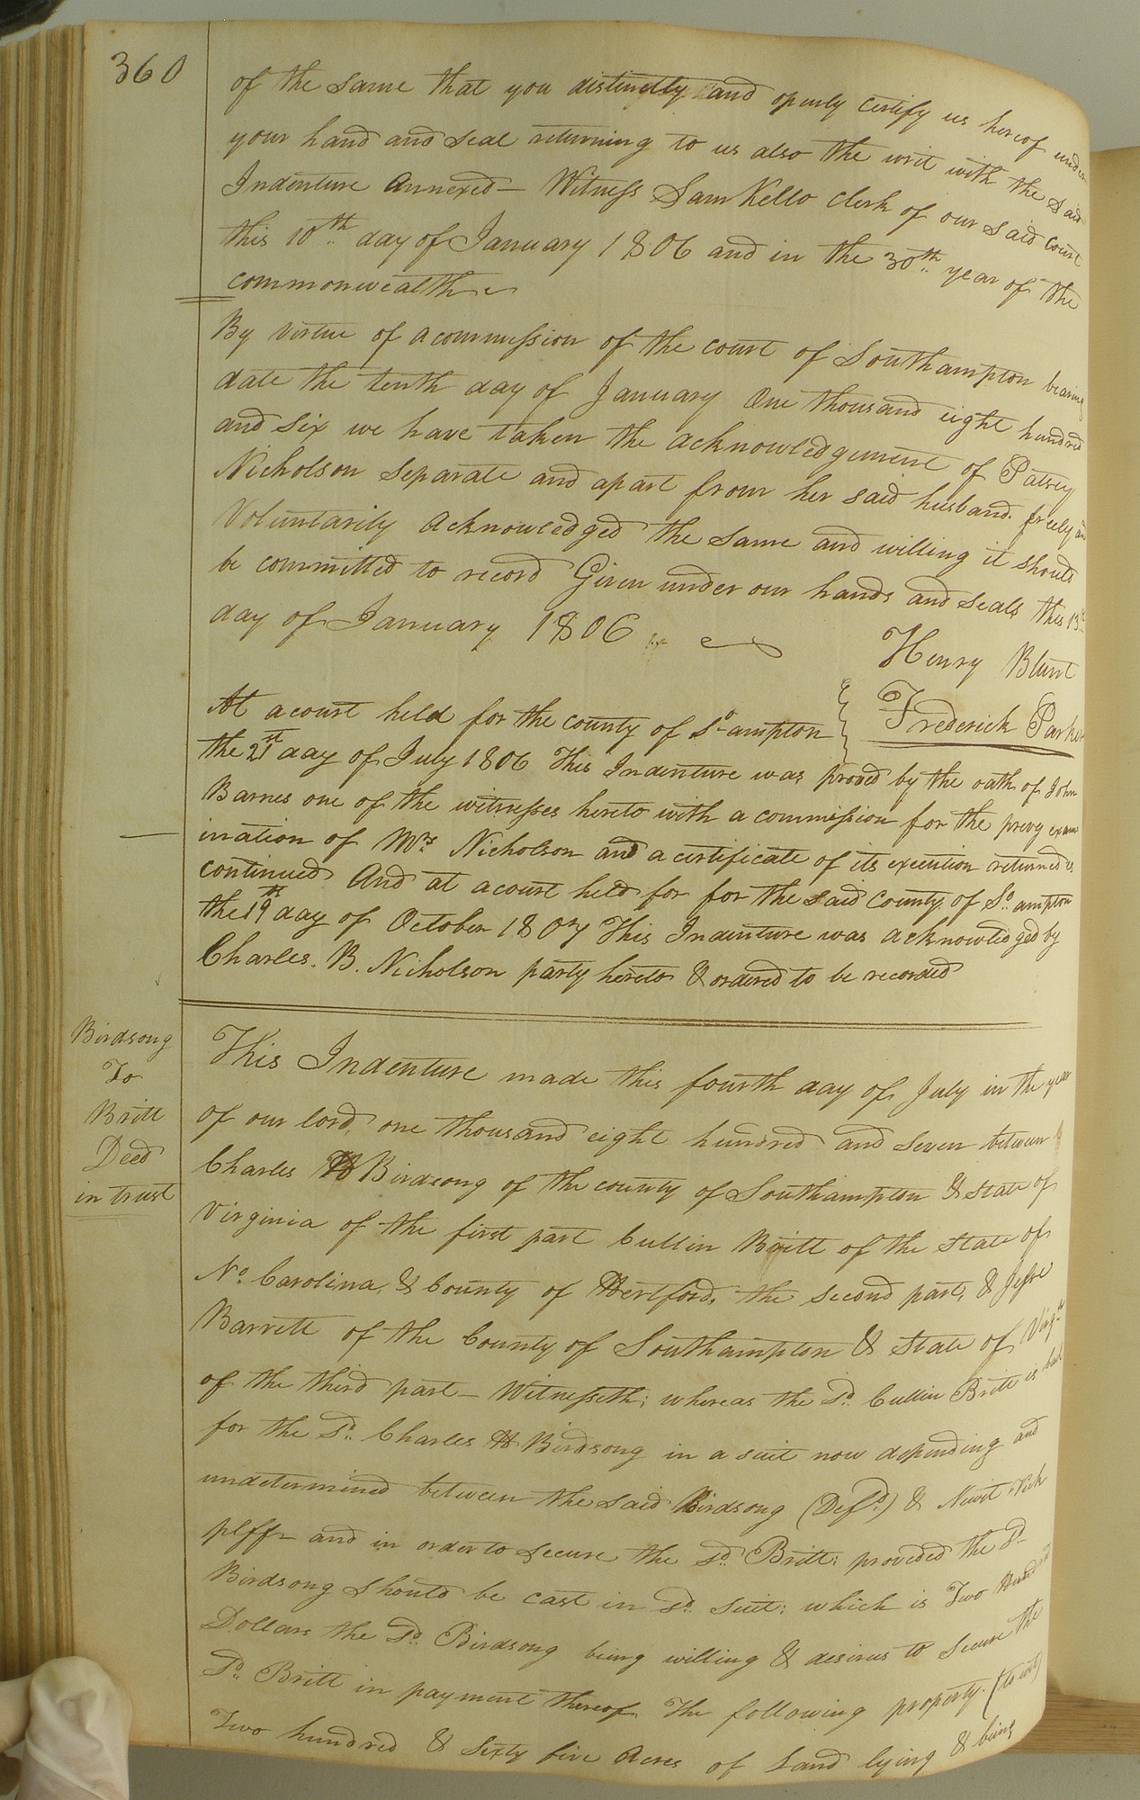 360
of the same that you distinctly and openly certify us hereof under
your hand and seal returning to us also the writ with the said
Indenture annexed — Witness Sam Kello clerk of our said court
this 10th day of January 1806 and in the 30th year of the
commonwealth
By virtue of a commission of the court of Southampton bearing
date the tenth day of January One thousand eight hundred
and six we have taken the acknowledgement of Patsey
Nicholson separate and apart from her said husband. freely and
Voluntarily acknowledged the same and willing it should
be committed to record Given under our hands and seals this 13th
day of January 1806
Henry Blunt
Frederick Parker
At a court held for the county of So ampton
the 21st day of July 1806 This Indenture was proved by the oath of John
Barnes one of the witnesses hereto with a commission for the privy exam
ination of Mrs Nicholson and a certificate of its execution returned is
continued And at a court held for for the said County of So. ampton
the 19th day of October 1807 This Indenture was acknowledged by
Charles. B. Nicholson party hereto & ordered to be recorded
Birdsong
To
Britt
Deed
in trust
This Indenture made this fourth day of July in the year
of our lord one thousand eight hundred and seven between
Charles H Birdsong of the county of Southampton & State of
Virginia of the first part Cullin Britt of the State of
No. Carolina, & County of Hertford, the second part, & Jesse
Barrett of the County of Southampton & State of Virga
of the third part — Witnesseth; whereas the Sd. Cullin Britt is bail
for the Sd. Charles H Birdsong in a suit now depending and
undetermined between the said Birdsong (Defd.) & Newit Vick
plff — and in order to secure the Sd. Britt; provided the Sd
Birdsong should be cast in Sd. suit; which is Two Hundred
Dollars the Sd. Birdsong being willing & desirus to Secure the
Sd. Britt in payment thereof The following property. (to wit)
Two hundred & Sixty five Acres of Land lying & being